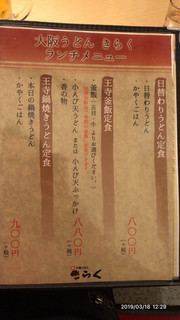 大阪うどん きらく
ランチメニュー
日替わりうどん定食
・日替わりうどん
・かやくごはん
八〇〇円
(+税)
王寺釜飯定食
・小えび天うどん または 小えび天ぶっかけ
・香の物
八八〇円
(+税)
王寺鍋焼きうどん定食
・本日の鍋焼きうどん
・かやくごはん
九〇〇円
(+税)
きらく
2019/03/18 12:29